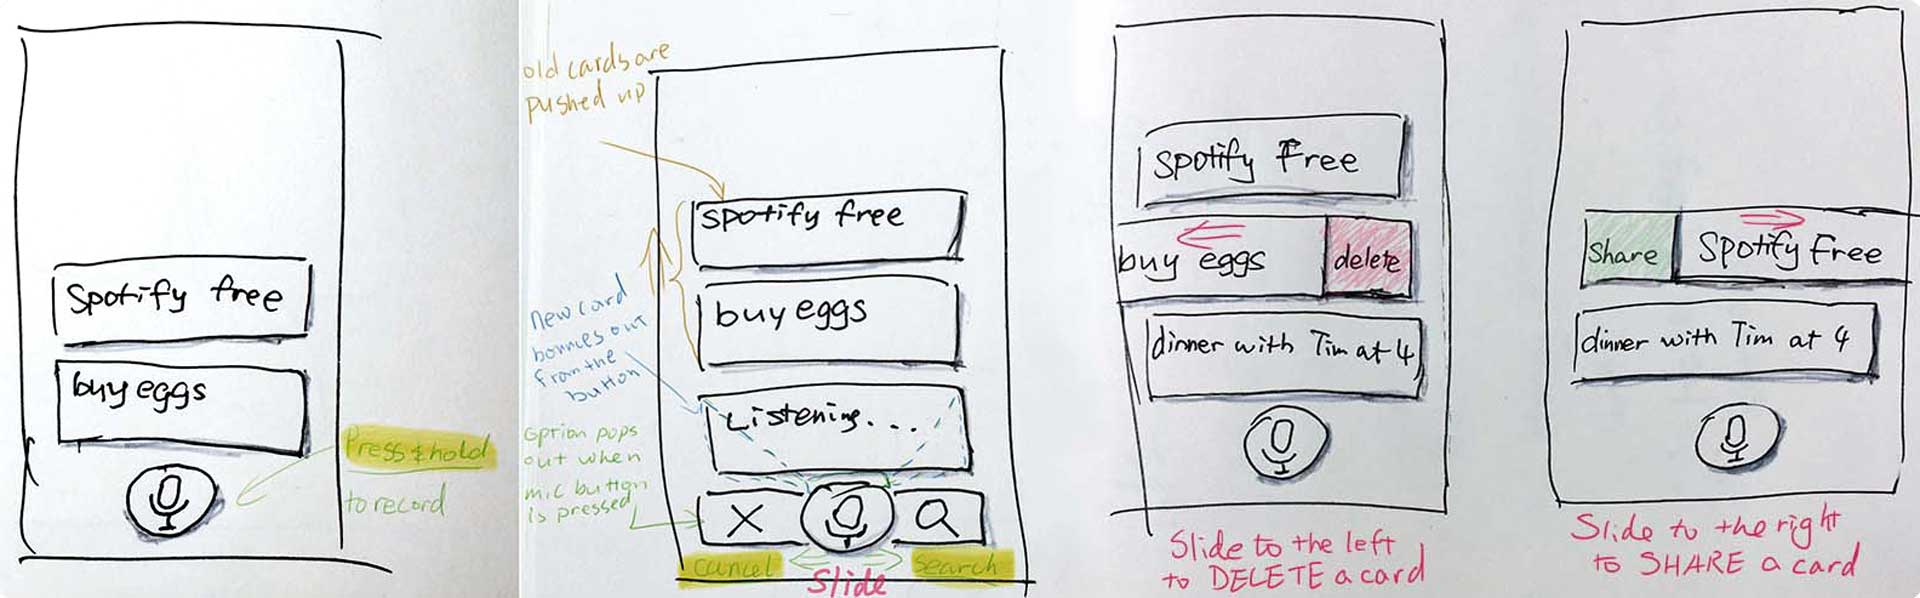 Spotify free
buy eggs
Press & hold
to record
old cards are
pushed up
spotify free
buy eggs
new card
bounces out
from the
button
Listening...
option pops
out when
mic button
is pressed
cancel
Slide
search
Spotify Free
buy eggs
delete
dinner with Tim at 4
Slide to the left
to DELETE a card
Share
Spotify Free
dinner with Tim at 4
Slide to the right
to SHARE a card